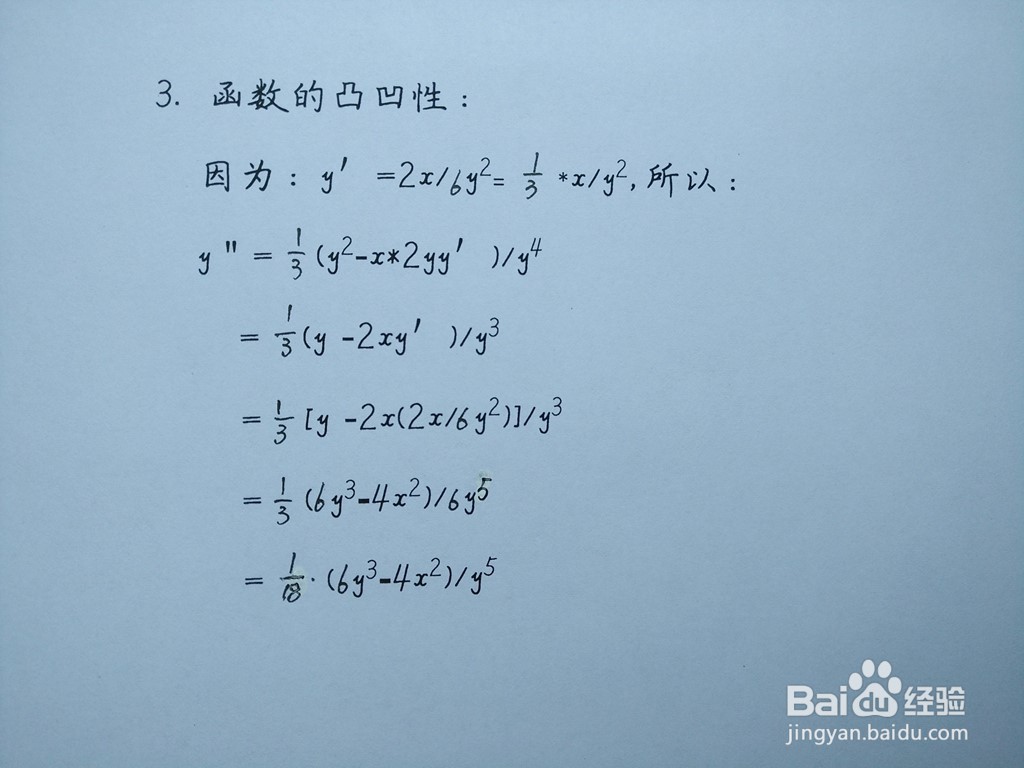 3. 函数的凸凹性:
因为: y' =2x/6y²= 1/3 *x/y²,所以:
y" = 1/3 (y²-x*2yy' )/y⁴
= 1/3 (y -2xy' )/y³
= 1/3 [y -2x(2x/6y²)]/y³
= 1/3 (6y³-4x²)/6y⁵
= 1/18 · (6y³-4x²)/y⁵
Baidu 经验
jingyan.baidu.com